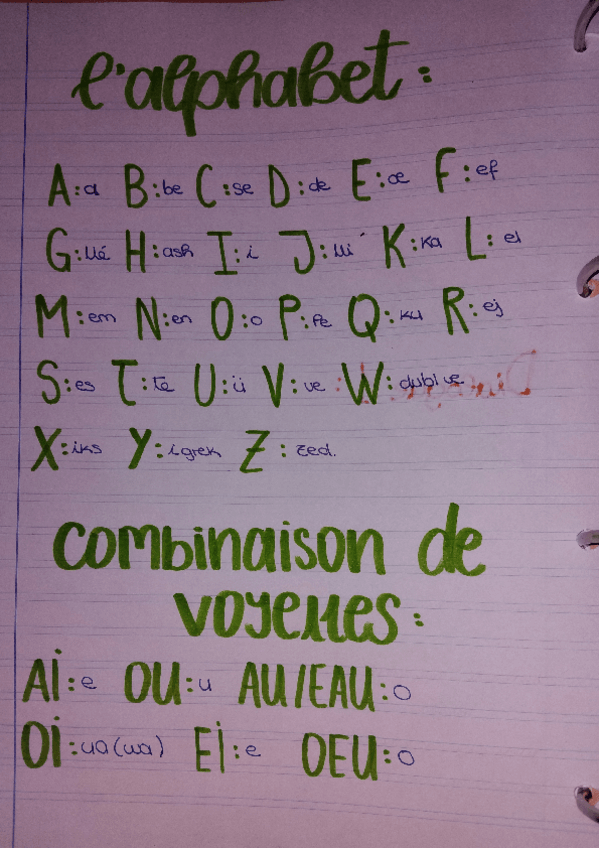 l'alphabet:
A:a B:be C:se D:de E:œ F:ef
G:llé H:ash I:i J:lli K:ka L:el
M:em N:en O:o P:pe Q:ku R:ej
S:es T:te U:ü V:ve W:dublve
X:iks Y:igrek Z:zed.
combinaison de
voyelles:
Ai:e OU:u AU/EAU:o
Oi:ua(wa) Ei:e OEU:o